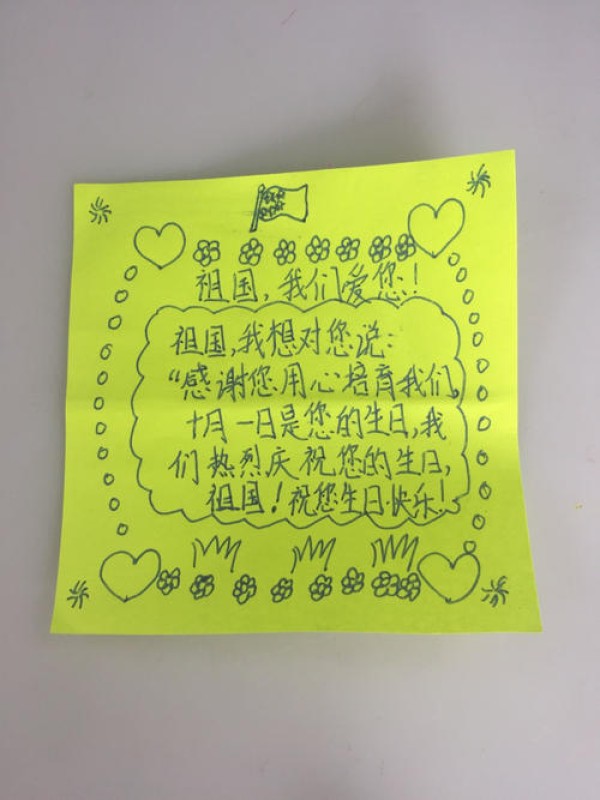 祖国,我们爱您!
祖国,我想对您说:
“感谢您用心培育我们。
十月一日是您的生日,我
们热烈庆祝您的生日,
祖国!祝您生日快乐!